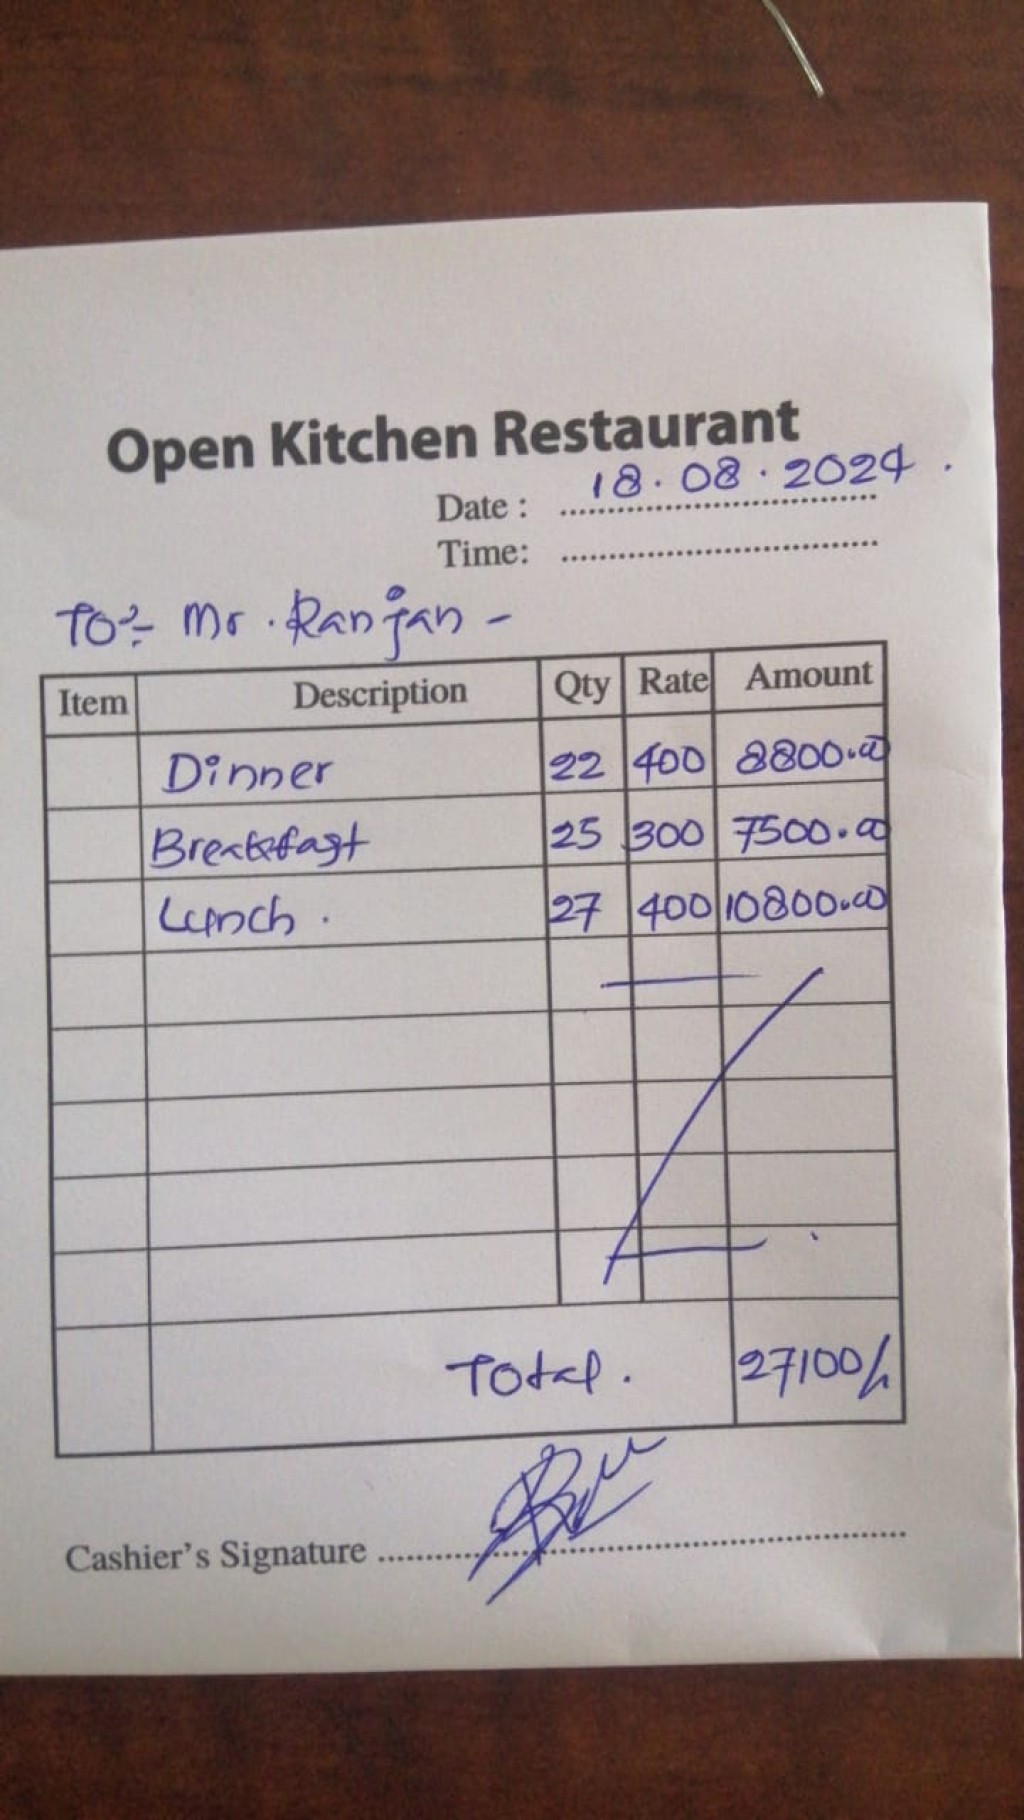 Open Kitchen Restaurant
Date : 18.08.2024.
Time:
To:- Mr. Ranjan -
Item Description Qty Rate Amount
Dinner 22 400 8800.00
Breakfast 25 300 7500.00
Lunch. 27 400 10800.00
Total. 27100/-
Cashier's Signature